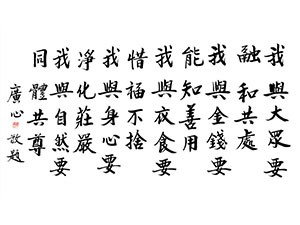 我與大眾要
融和共處
我與金錢要
能知善用
我與衣食要
惜福不捨
我與身心要
淨化莊嚴
我與自然要
同體共尊
廣心敬題